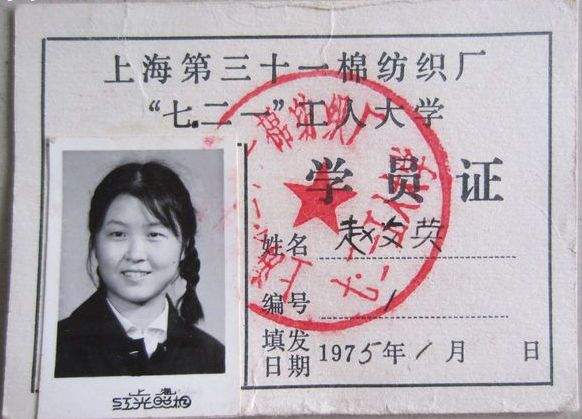 上海第三十一棉纺织厂
“七.二一”工人大学
学员证
姓名 赵文英
编号 1
填发日期 1975年1月 日
上海
红光照相